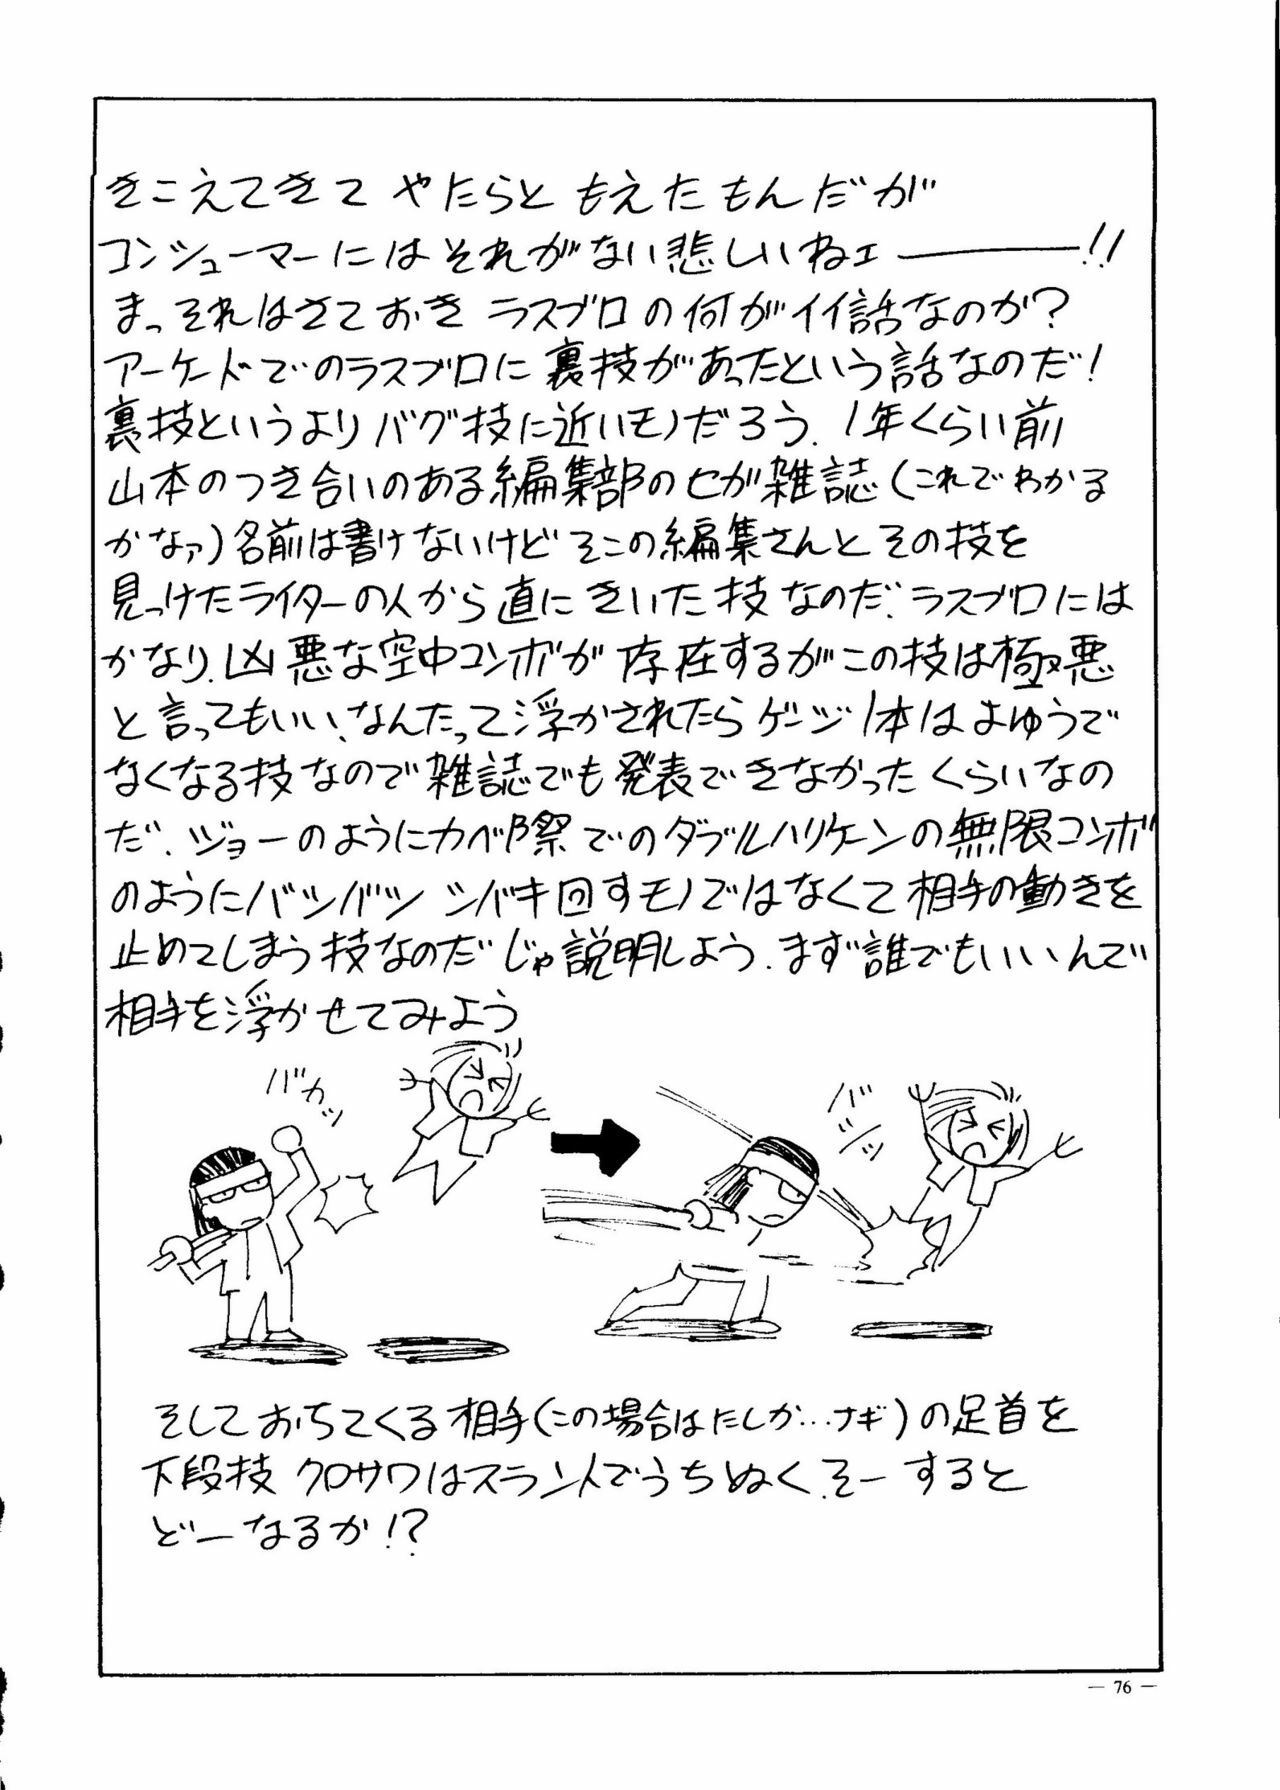 きこえてきて やたらと もえたもんだが
コンシューマーにはそれがない悲しいねェ―――!!
まっそれはさておき ラスブロの何がイイ話なのか？
アーケードでのラスブロに裏技があったという話なのだ！
裏技というよりバグ技に近いモノだろう、1年くらい前
山本のつき合いのある編集部のセガ雑誌（これでわかる
かなァ）名前は書けないけど そこの編集さんとその技を
見つけたライターの人から直にきいた技なのだ、ラスブロには
かなり凶悪な空中コンボが存在するがこの技は極悪
と言ってもいい、なんたって浮かされたらゲージ1本はよゆうで
なくなる技なので雑誌でも発表できなかったくらいなの
だ、ジョーのようにカベ際でのダブルハリケーンの無限コンボ
のようにバシバシ シバキ回すモノではなくて相手の動きを
止めてしまう技なのだ じゃ説明しよう、まず誰でもいいんで
相手を浮かせてみよう
バカッ
バシッ
そしておちてくる相手（この場合はたしか…ナギ）の足首を
下段技 クロサワはスラントでうちぬく、そーすると
どーなるか!?
— 76 —